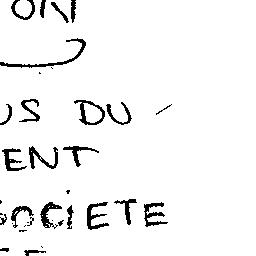 ON
US DU
ENT
SOCIETE